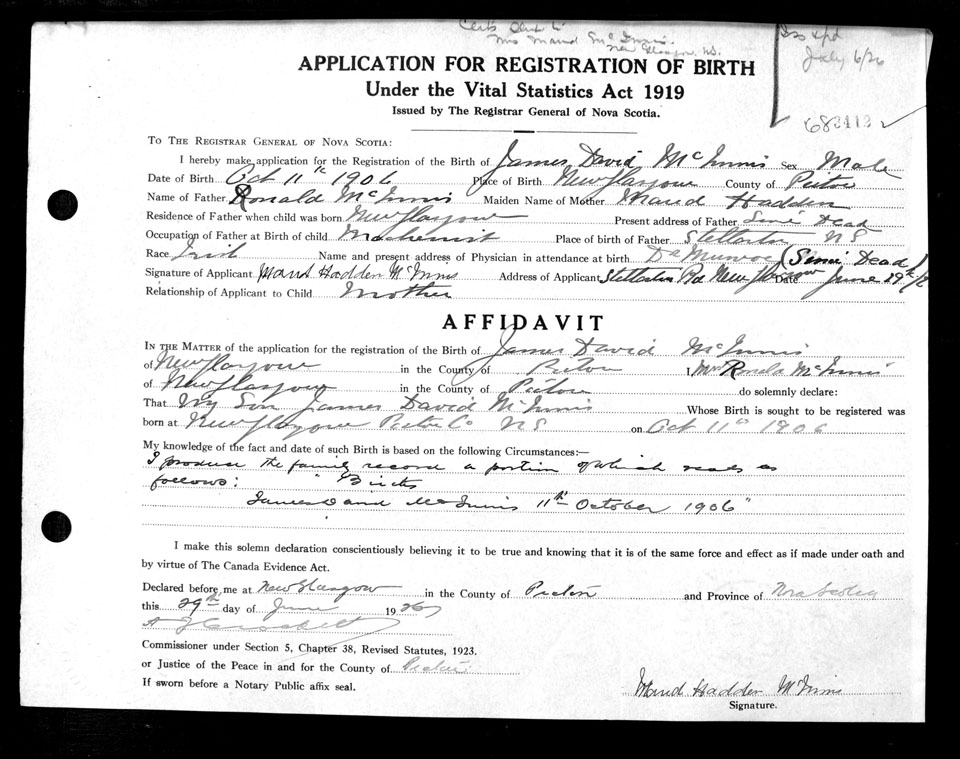 Mrs Maud McInnis.
New Glasgow, N.S.
July 6/26
APPLICATION FOR REGISTRATION OF BIRTH
Under the Vital Statistics Act 1919
Issued by The Registrar General of Nova Scotia.
TO THE REGISTRAR GENERAL OF NOVA SCOTIA:
I hereby make application for the Registration of the Birth of James David McInnis Sex Male
Date of Birth Oct 11th 1906 Place of Birth New Glasgow County of Pictou
Name of Father Ronald McInnis Maiden Name of Mother Maud Hadden
Residence of Father when child was born New Glasgow Present address of Father Dead
Occupation of Father at Birth of child Machinist Place of birth of Father Stellarton NS
Race Irish Name and present address of Physician in attendance at birth Dr Munroe ( Dead )
Signature of Applicant Maud Hadden McInnis Address of Applicant Stellarton Rd New Glasgow Date June 29th
Relationship of Applicant to Child Mother
AFFIDAVIT
IN THE MATTER of the application for the registration of the Birth of James David McInnis
of New Glasgow in the County of Pictou I, Mrs Ronald McInnis
of New Glasgow in the County of Pictou do solemnly declare:
That My Son James David McInnis Whose Birth is sought to be registered was
born at New Glasgow Pictou Co NS on Oct 11th 1906
My knowledge of the fact and date of such Birth is based on the following Circumstances:—
I produce the family record a portion of which reads as
follows: "Births
James David McInnis 11th October 1906"
I make this solemn declaration conscientiously believing it to be true and knowing that it is of the same force and effect as if made under oath and
by virtue of The Canada Evidence Act.
Declared before me at New Glasgow in the County of Pictou and Province of Nova Scotia
this 29th day of June 1926
Commissioner under Section 5, Chapter 38, Revised Statutes, 1923.
or Justice of the Peace in and for the County of Pictou
If sworn before a Notary Public affix seal.
Maud Hadden McInnis
Signature.